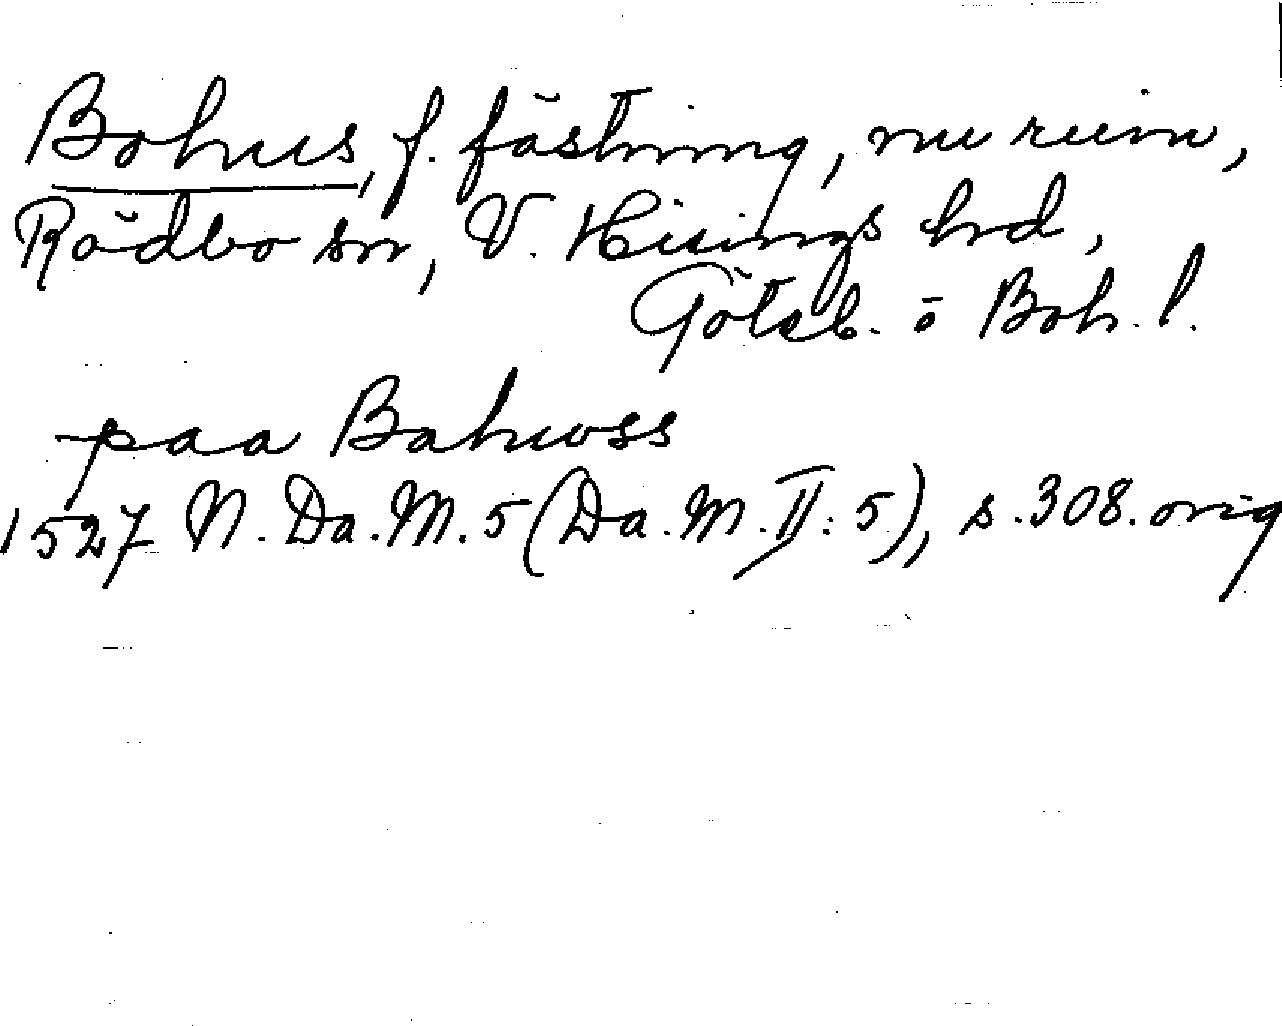 Bohus, f. fästning, nu ruin,
Rödbo sn, V. Hisings hrd,
Göteb. o Boh. l.
paa Bahwss
1527 N. Da. M. 5 (Da. M. II: 5), s. 308. orig